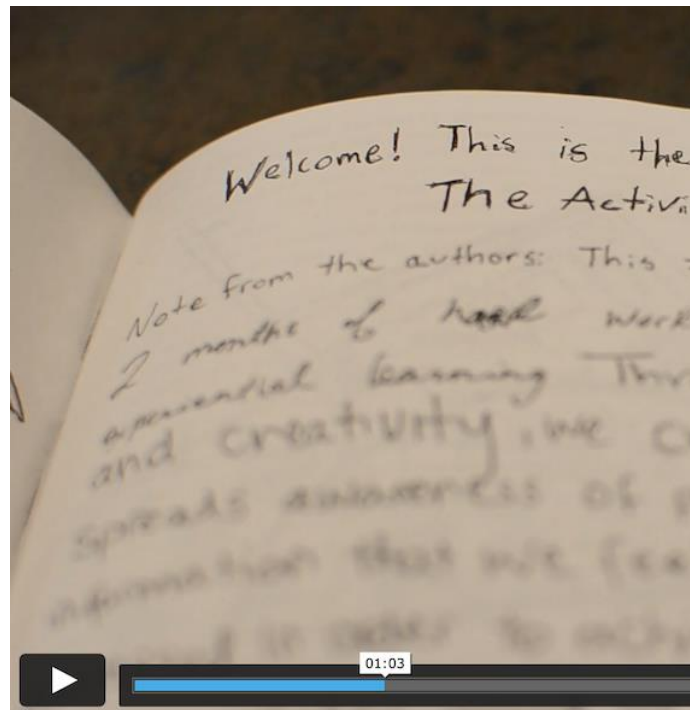 Welcome! This is the
The Activi
Note from the authors: This
2 months of hard work
experiential learning Thr
and creativity, we c
spreads awareness of
information that we feel
in order to
01:03